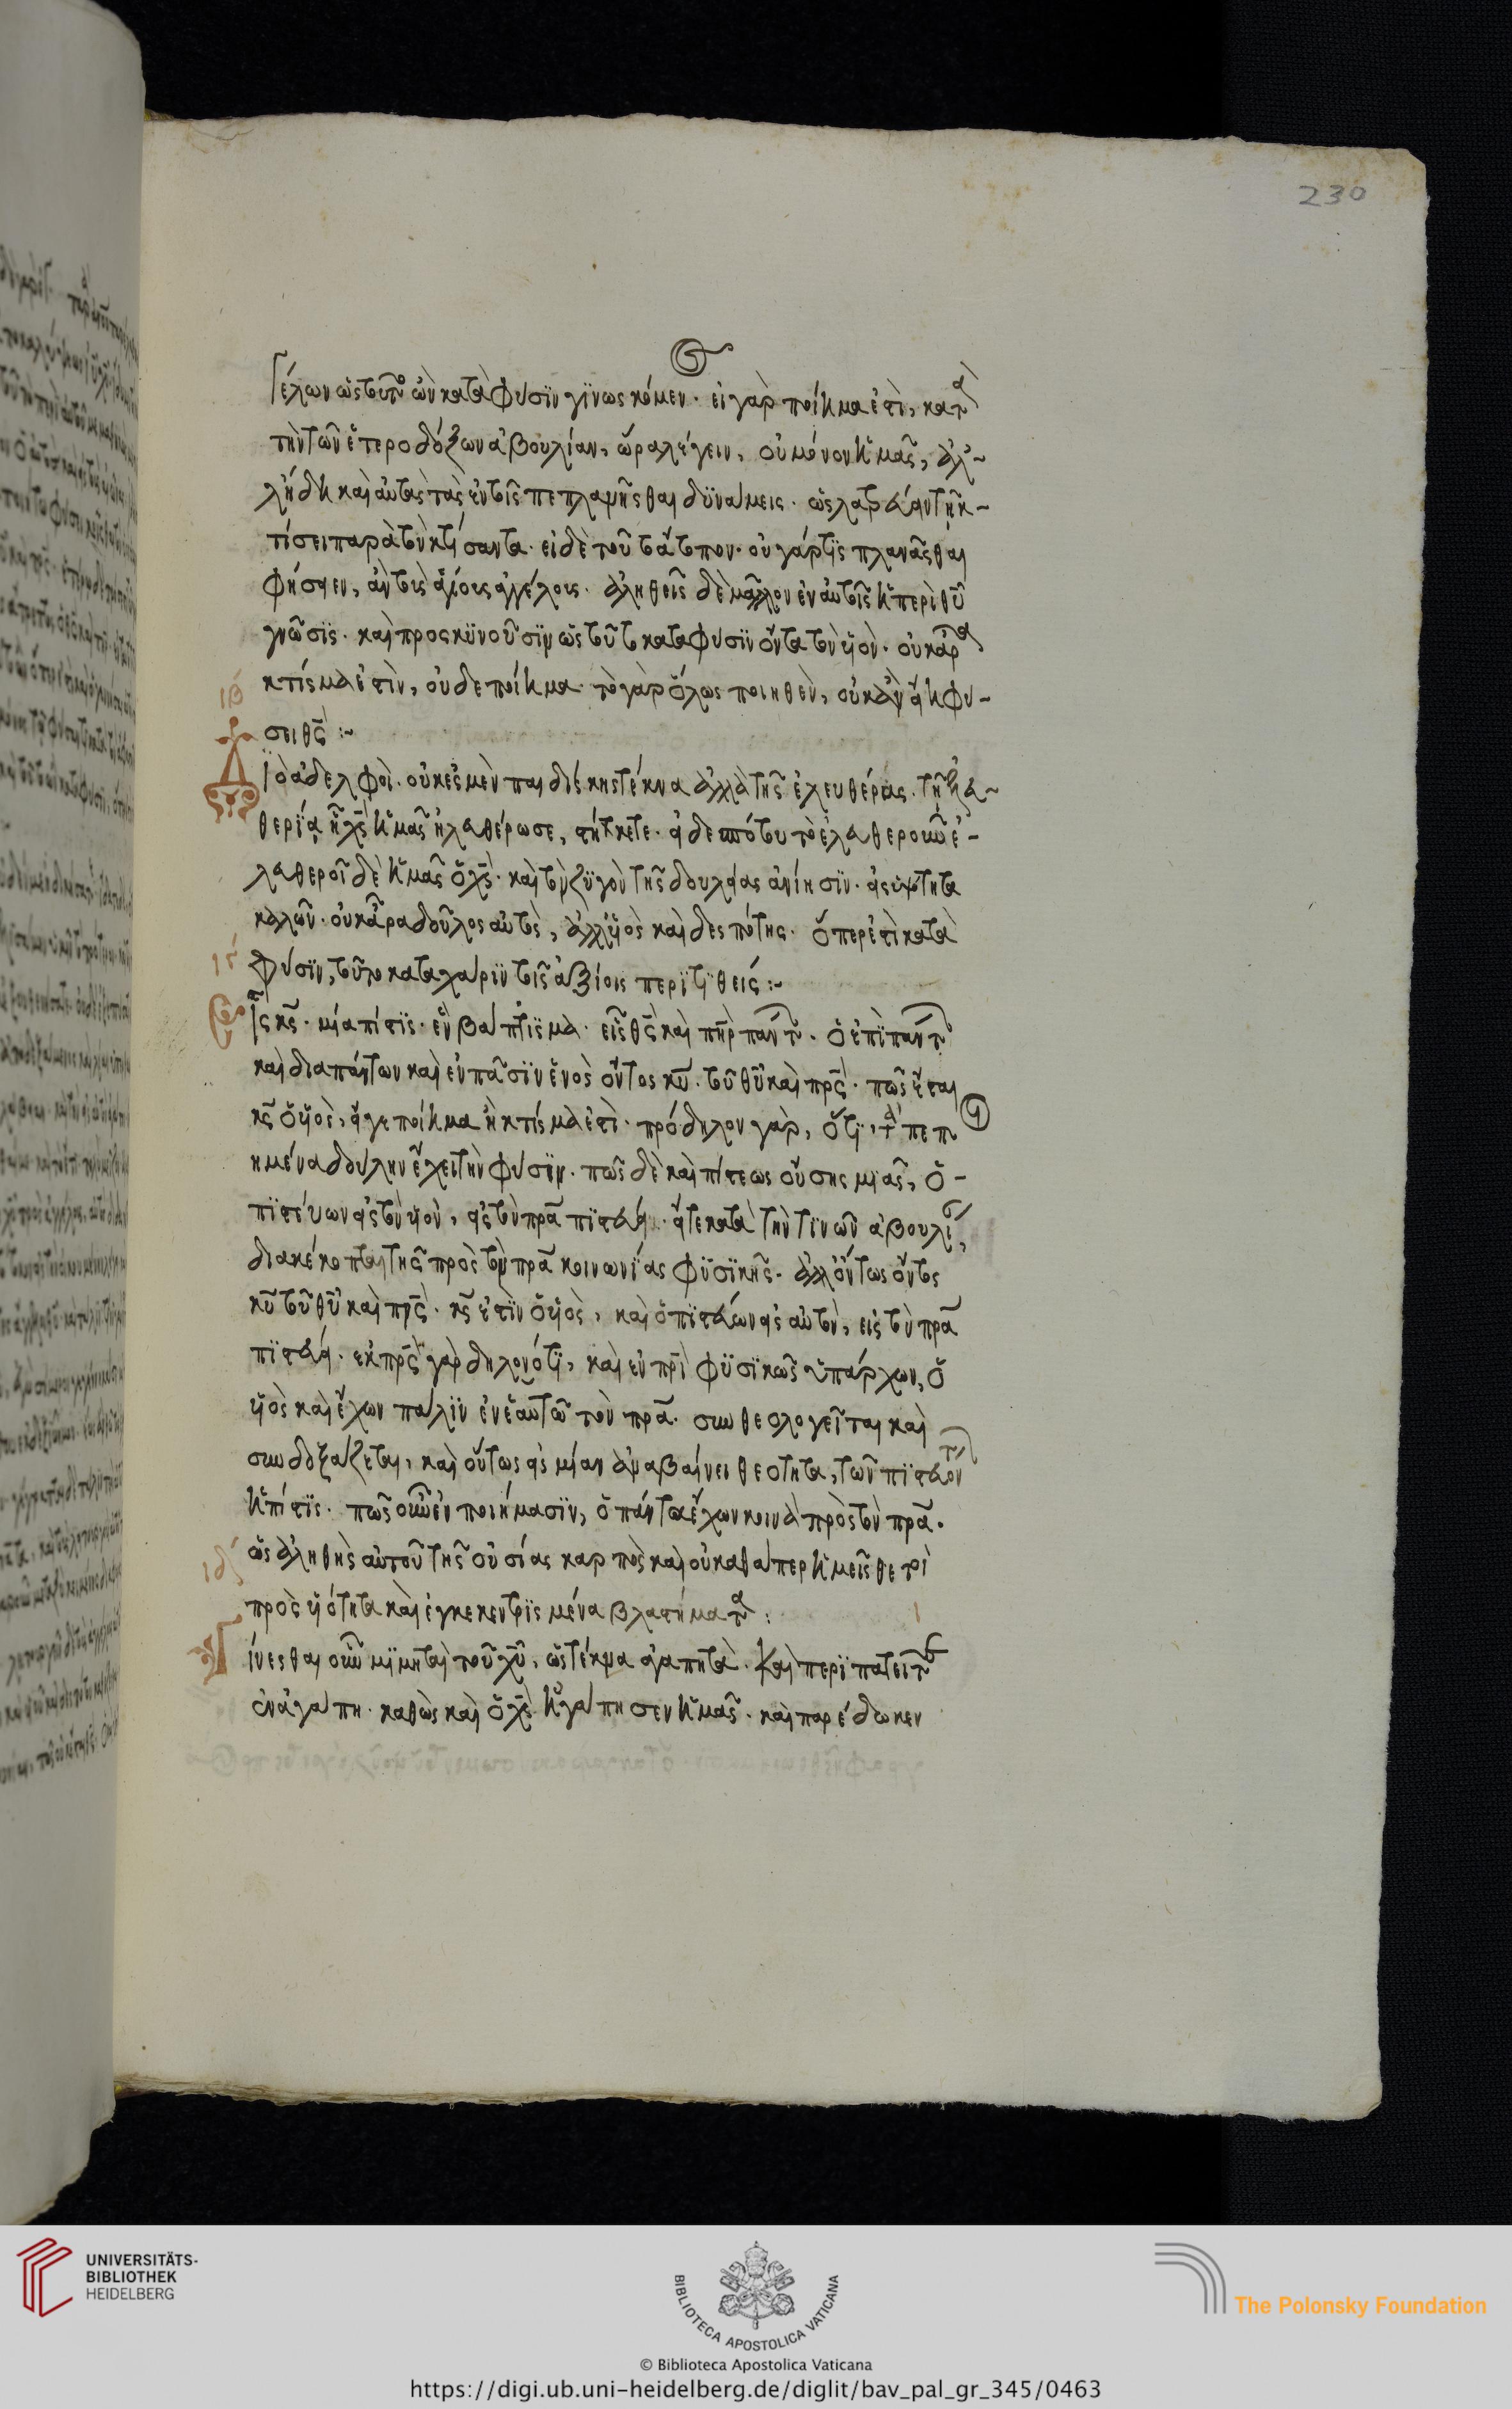 230
γέλων ὡς τοῦτο ὢν κατὰ φύσϊν γϊνώσκομεν. εἰ γὰρ ποίημα ἐστὶ, κατὰ
τὴν τῶν ἑτεροδόξων ἀβουλίαν, ὥρα λέγειν, οὐ μόνον ἡμᾶς, ἀλ-
λ' ἤδη καὶ αὐτὰς τὰς ἐν τοῖς πεπλανῆσθαι δϋνάμεις. ὡς λατρεύειν τῇ κ-
τίσει παρὰ τὸν κτίσαντα. εἰ δὲ τοῦτο ἄτοπον. οὐ γάρ τϊς πλανᾶσθαι
φήσειεν, ἂν τοὺς ἁγίους ἀγγέλους. ἀληθεῖς δὲ μᾶλλον ἐν αὐτοῖς ἡ περὶ θυ
γνῶσϊς. καὶ προςκϋνοῦσϊν ὡς τοῦτο κατα φύσϊν ὄντα τὸν υἱὸν. οὐκ ἄρα
κτίσμα ἐστὶν, οὐδε ποίημα. τὸ γὰρ ὅλως ποιηθὲν, οὐκ ἂν εἴη φύ-
ιβ
σει θς :~
ἀδελφοὶ. οὐκ ἐσμὲν παιδίσκης τέκνα ἀλλὰ τῆς ἐλευθέρας. τῇ ἐλευ-
θερίᾳ ᾗ χς ἡμᾶς ἠλευθέρωσε, στήκετε. εἰ δε πότου τὸ ἐλευθεροῦν ἐ-
λευθεροῖ δὲ ἡμᾶς ὁ χς. καὶ τὸν ζϋγὸν τῆς δουλείας ἀνίησϊν. εἰς υἱότητα
καλῶν. οὐκ ἄρα δοῦλος αὐτὸς, ἀλλ' υἱὸς καὶ δεσπότης. ὅπερ ἐστὶ κατὰ
ιγ
φύσϊν, τοῦτο κατα χάριν τοῖς ἀξίοις περιτϊθεὶς :~
εἷς κς. μία πίστϊς. ἓν βάπτϊσμα. εἷς θς καὶ πηρ πάντων. ὁ ἐπὶ πάντων
καὶ δια πάντων καὶ ἐν πᾶσϊν ἑνὸς ὄντος κυ. τοῦ θυ καὶ πρς. πῶς ἔσται
κς ὁ υἱὸς, εἴγε ποίημα ἢ κτίσμα ἐστὶ. πρόδηλον γὰρ, ὅτϊ, τὰ πεποι
ημένα δούλην ἔχει τὴν φύσϊν. πῶς δὲ καὶ πίστεως οὔσης μϊᾶς, ὁ
πϊστεύων εἰς τὸν υἱὸν, εἰς τὸν πρα πϊστεύει. εἴτε κατὰ τὴν τϊνῶν ἀβουλίαν,
διακέκοπται τῆς πρὸς τὸν πρα κοινωνίας φϋσϊκῆς. ἀλλ' ὄντως ὄντος
κυ τοῦ θυ καὶ πρς. κς ἐστϊν ὁ υἱὸς, καὶ ὁ πϊστεύων εἰς αὐτὸν, εἰς τὸν πρα
πϊστεύει. ἐκ πρς γὰρ δηλονότϊ, καὶ ἐν πρὶ φϋσϊκῶς ὑπάρχων, ὁ
υἱὸς καὶ ἔχων πάλϊν ἐν ἑαυτῶ τὸν πρα. συνθεολογεῖται καὶ
συνδοξάζεται, καὶ οὕτως εἰς μίαν ἀναβαίνει θεότητα, τῶν πϊστευόντων
ἡ πίστϊς. πῶς οὖν ἐν ποιήμασϊν, ὁ πάντα ἔχων κοινὰ πρὸς τὸν πρα.
ιδ
ὡς ἀληθὴς αὐτοῦ τῆς οὐσίας καρπὸς καὶ οὐ καθάπερ ἡμεῖς θετοὶ
πρὸς υἱότητα καὶ ἐγκεκεντρϊσμένα βλαστήματα :
γίνεσθαι οὖν μϊμηταὶ τοῦ χυ, ὡς τέκνα ἀγαπητὰ. καὶ περϊπατεῖτε
ἐν ἀγάπη. καθὼς καὶ ὁ χς ἠγάπησεν ἡμᾶς. καὶ παρέδωκεν
UNIVERSITÄTS-
BIBLIOTHEK
HEIDELBERG
BIBLIOTECA APOSTOLICA VATICANA
The Polonsky Foundation
© Biblioteca Apostolica Vaticana
https://digi.ub.uni-heidelberg.de/diglit/bav_pal_gr_345/0463